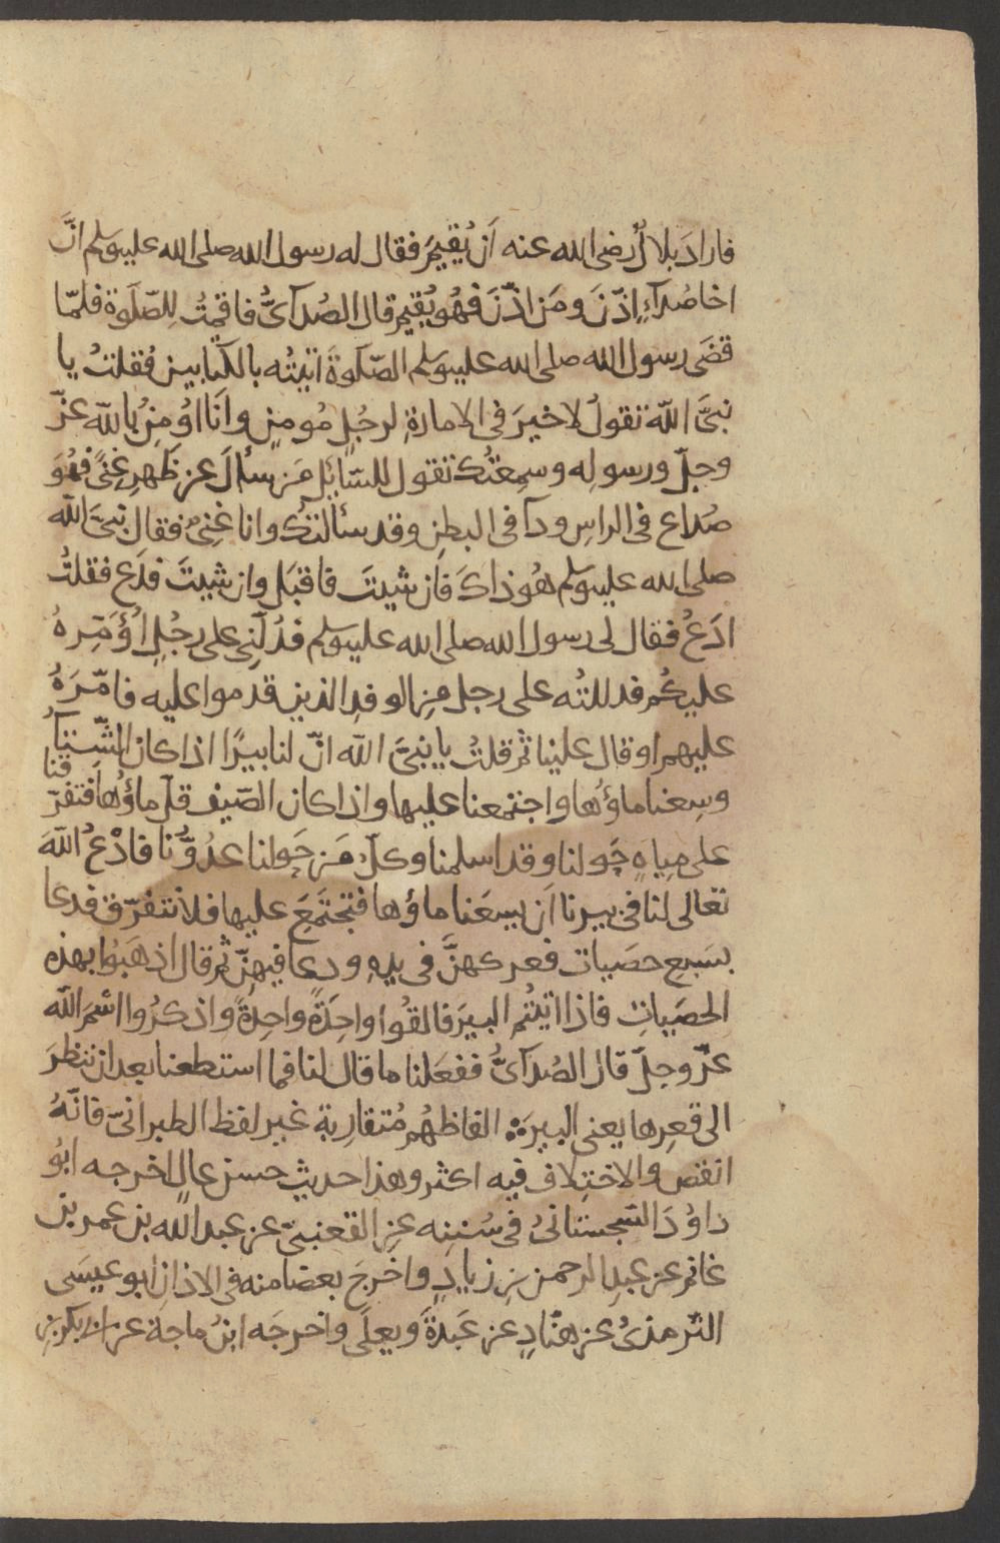 فاراد بلالٌ رضى الله عنه اَن يُقيمَ فقال له رسول الله صلى الله عليه وسلم انَّ
اخا صُدآءٍ اذّنَ ومَن اذّنَ فهُو يُقيم قال الصُدآىُّ فاقمتُ لِلصّلوة فلمّا
قضَى رسول الله صلى الله عليه وسلم الصّلوةَ اتيتُه بالكتابين فقلتُ يا
نبىَّ الله تقولُ لا خيرَ فى الامارةِ لرجُلٍ مُومنٍ وانَا اوُمِنُ بالله عزّ
وجلّ ورسوله وسمِعتُك تقول للسّايلِ مَن سألَ عن ظَهرِ غِنًى فهُوَ
صُداع فى الراسِ ودآ فى البطنِ وقد سألتك وانا غَنِىٌ فقال نبىّ الله
صلى الله عليه وسلم هُو ذاكَ فان شيتَ فاقبَل وان شيتَ فدَع فقلتُ
ادَعُ فقال لى رسول الله صلى الله عليه وسلم فدُلّنِى على رجُلٍ اُؤَمّرهُ
عليكُم فدللتُه على رجل من الوفدِ الذين قدموا عليه فامّرَهُ
عليهم او قال علينا ثم قلتُ يا نبىَّ الله انّ لنا بيرًا اذا كان الشّتآُ
وسِعنا ماؤُها واجتمعنا عليها واذا كان الصّيف قلّ ماؤُها فتفرّقنا
على مِياهٍ حَولنا وقد اسلمنا وكلّ مَن حَولنا عدُوٌّ لنا فادْعُ الله
تعالى لنا فى بيرنا اَن يسعَنا ماؤها فتجتَمعَ عليها فلا نتفرّق فدعا
بسَبع حصَيات فعركهنَّ فى يدِه ودعا فيهنّ ثم قال اذهَبُوا بهذه
الحصَيات فاذا اتيتُم البيرَ فالقُوا واحِدَةً واحِدةً واذكرُوا اسْمَ الله
عزّ وجلّ قال الصُدآىُّ ففعَلنا ما قال لنا فما استطعنا بعد ان ننظرَ
الى قعرِها يعنى البيرَ الفاظهُم مُتقاربة غير لفظ الطبرانىّ فانّهُ
انقص والاختِلاف فيه اكثر وهذا حديث حسن عالٍ اخرجه ابوُ
داوُدَ السّجستانىُ فى سُننِه عن القعنبىّ عن عبد الله بن عمر بن
غانم عن عبدِ الرحمن بنِ زيادٍ واخرجَ بعضا منه فى الاذان ابو عيسَى
التّرمذىُ عن هنّادٍ عن عَبدةَ ويعلَى واخرجَه ابنُ ماجة عن ابى بكر بنِ